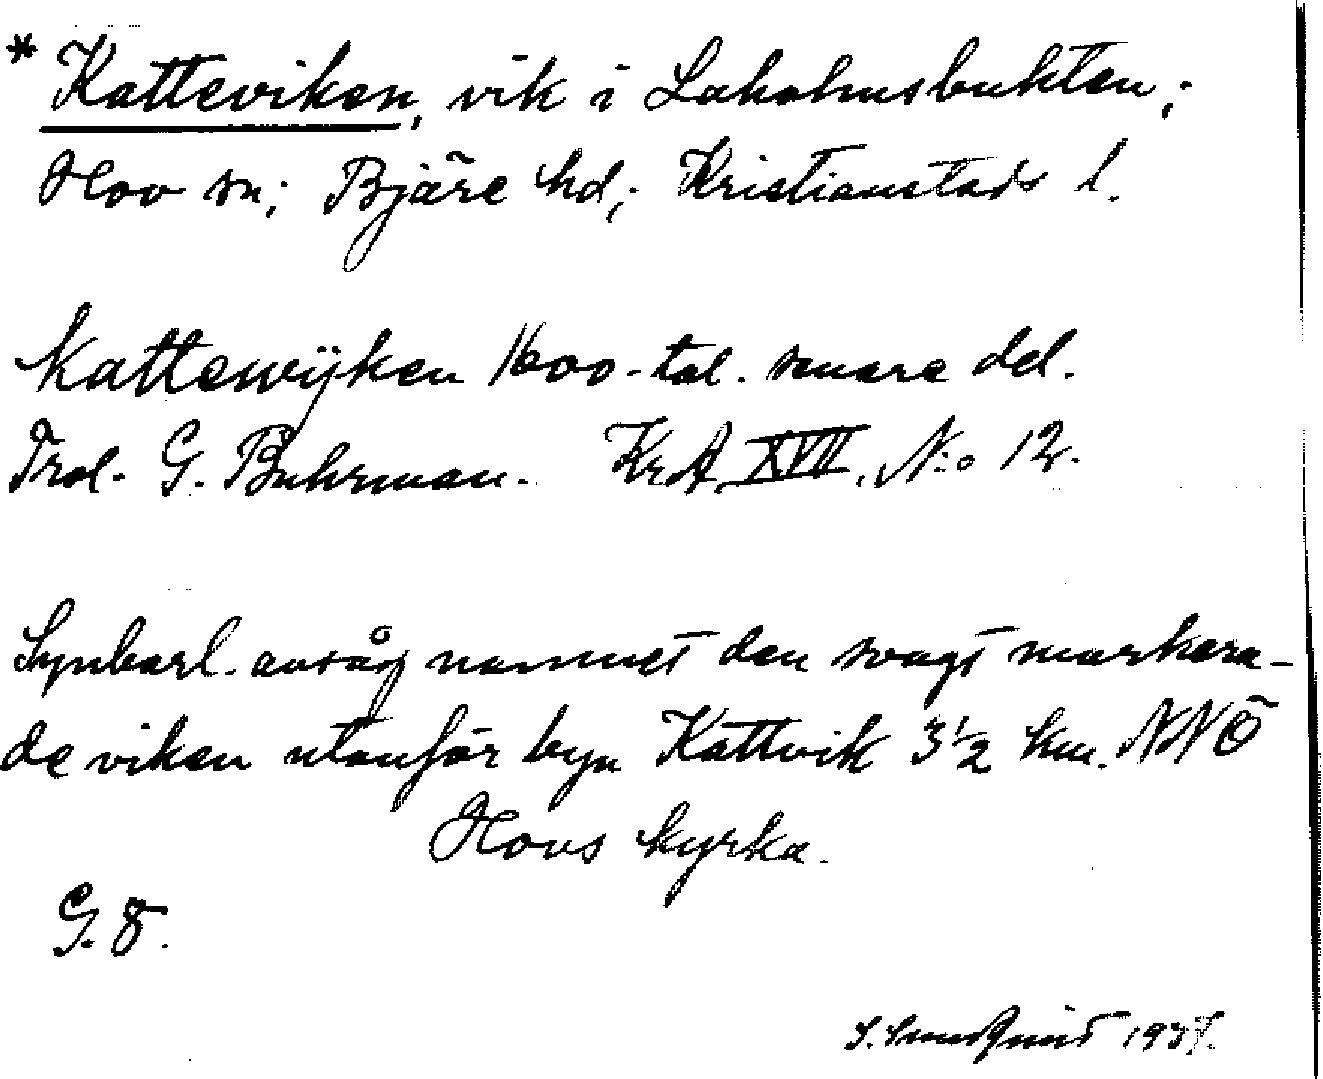 * Katteviken, vik i Laholmsbukten;
Hov sn; Bjäre hd; Kristianstads l.
Kattewijken 1600-tal. senare del.
Trol. G. Buhrman. KrA, XVII, N:o 12.
Synbarl. avsåg namnet den svagt markera-
de viken utanför byn Kattvik 3½ km. NNÖ
Hovs kyrka.
G. 8.